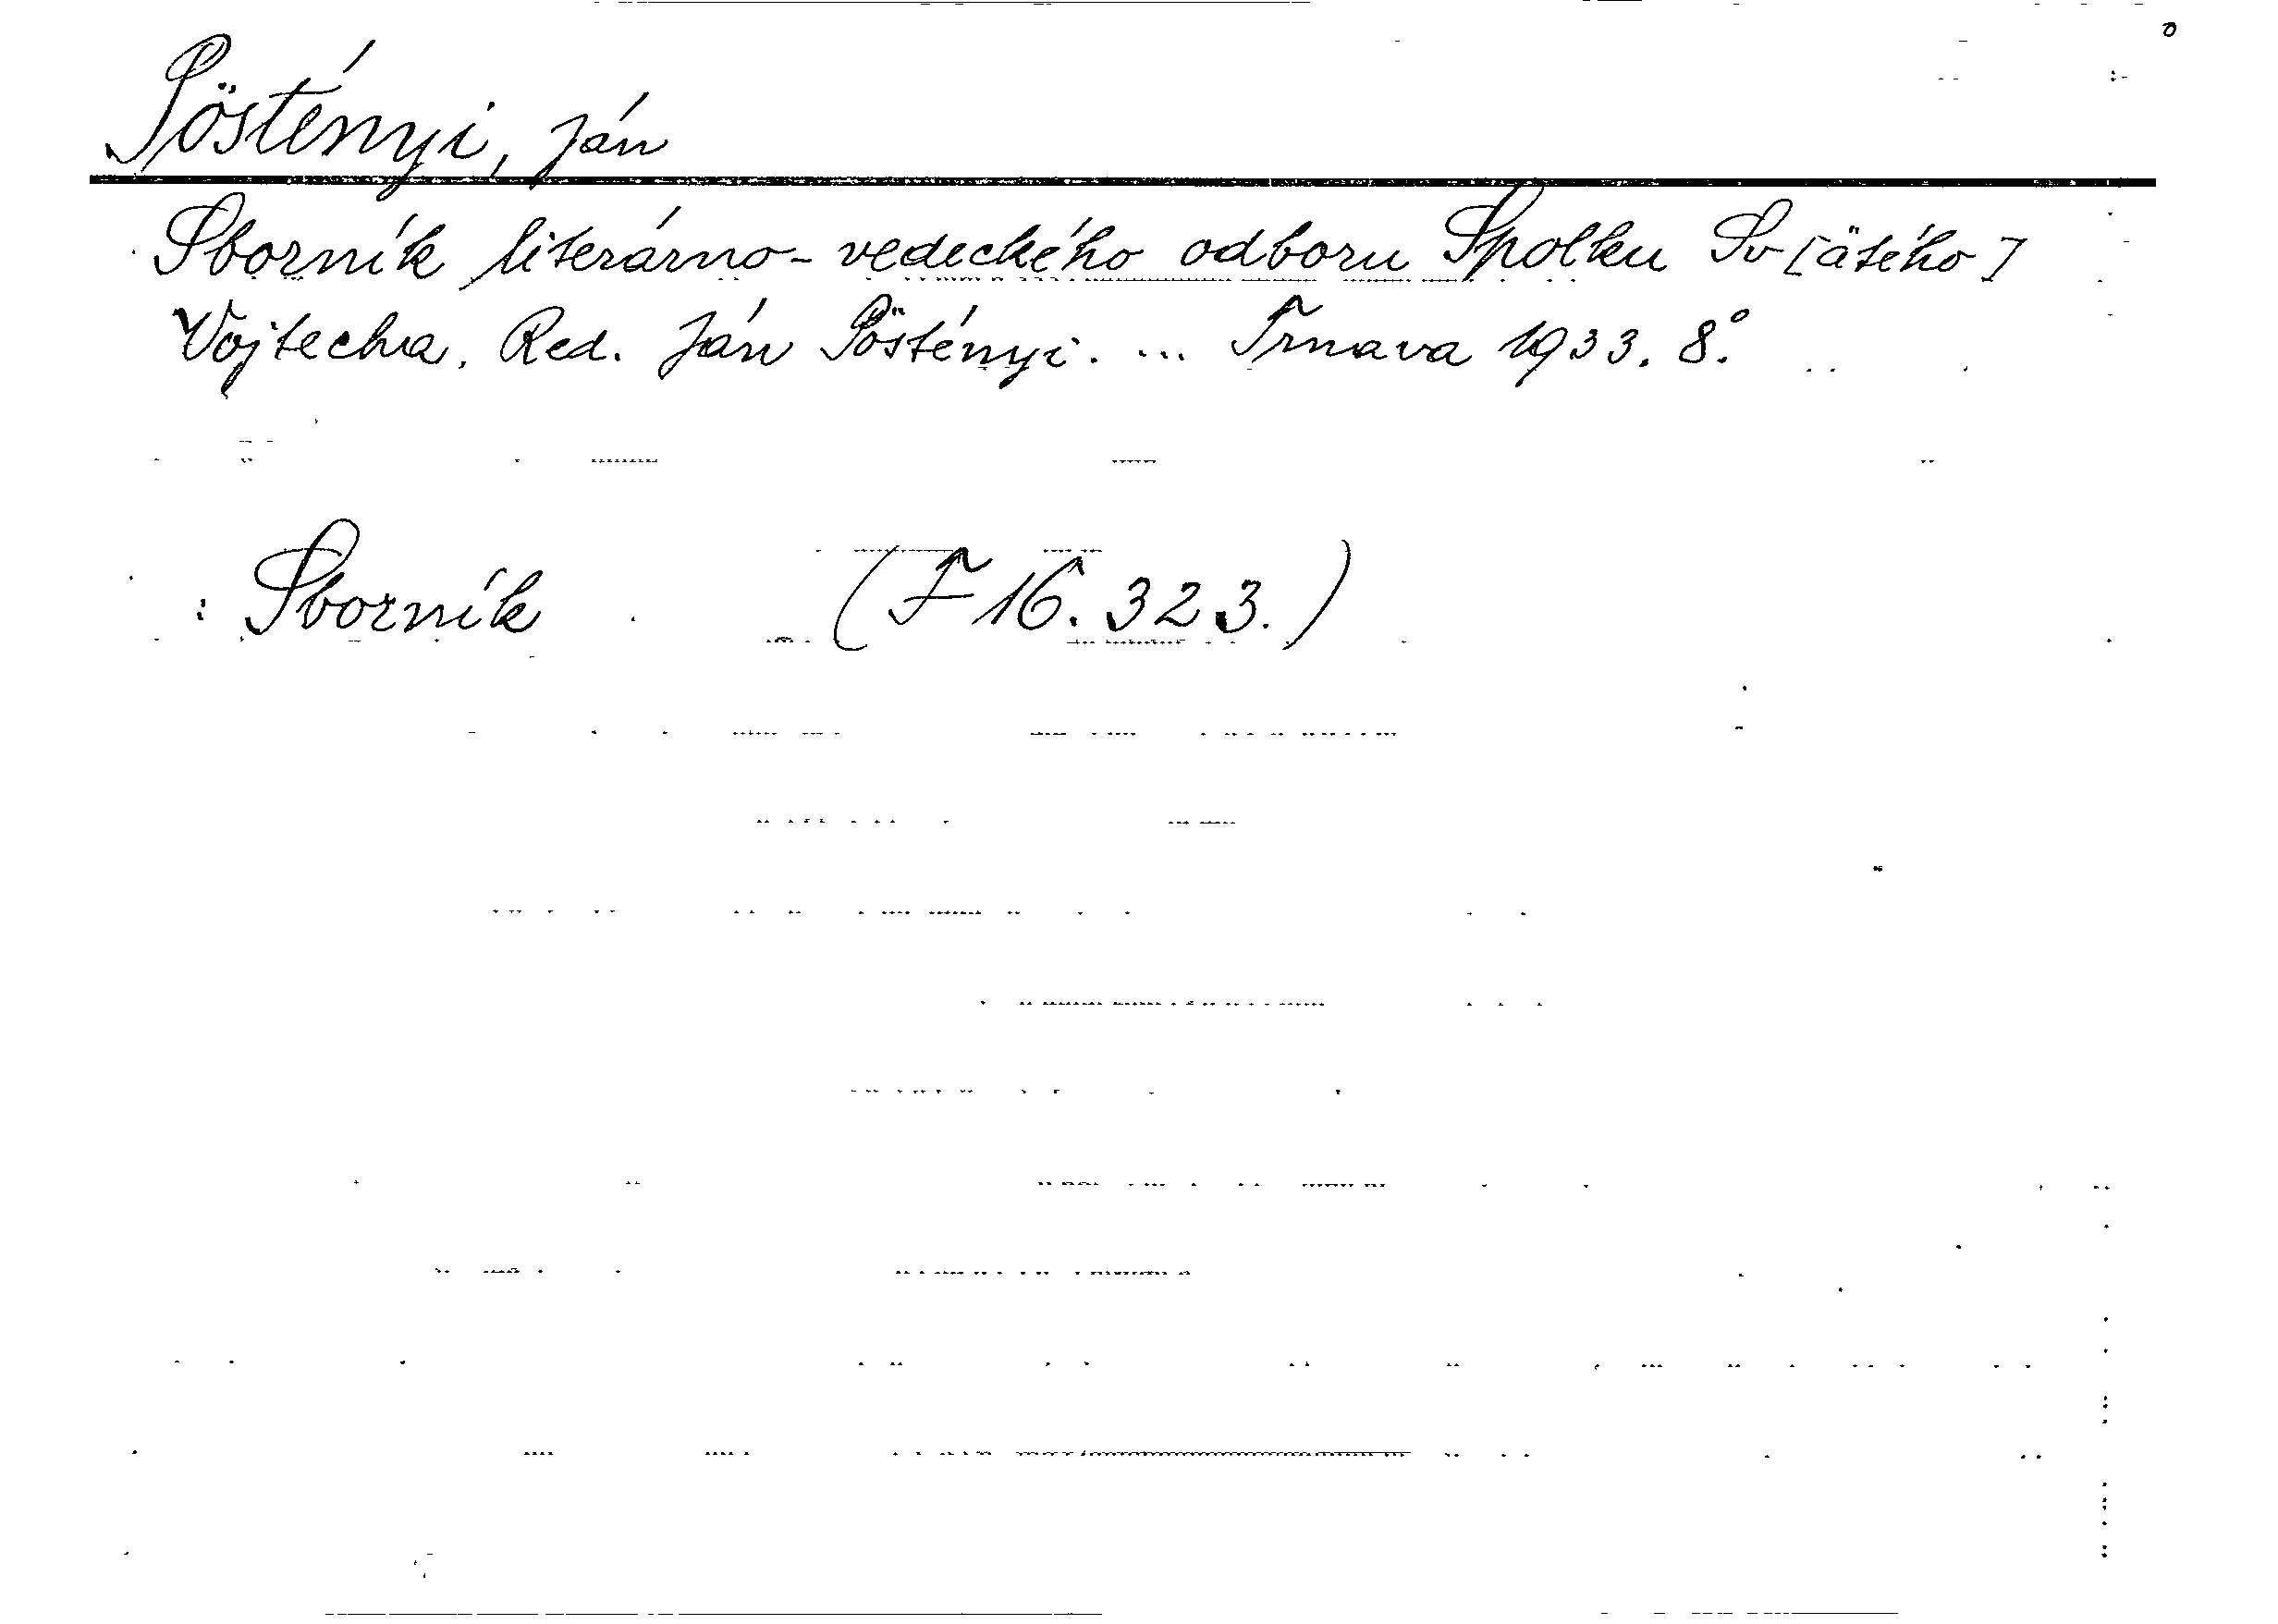 Pöstényi, Ján
Sborník literárno-vedeckého odboru Spolku Sv[ätého]
Vojtecha. Red. Ján Pöstényi. ... Trnava 1933. 8°.
: Sborník (F 16.323.)